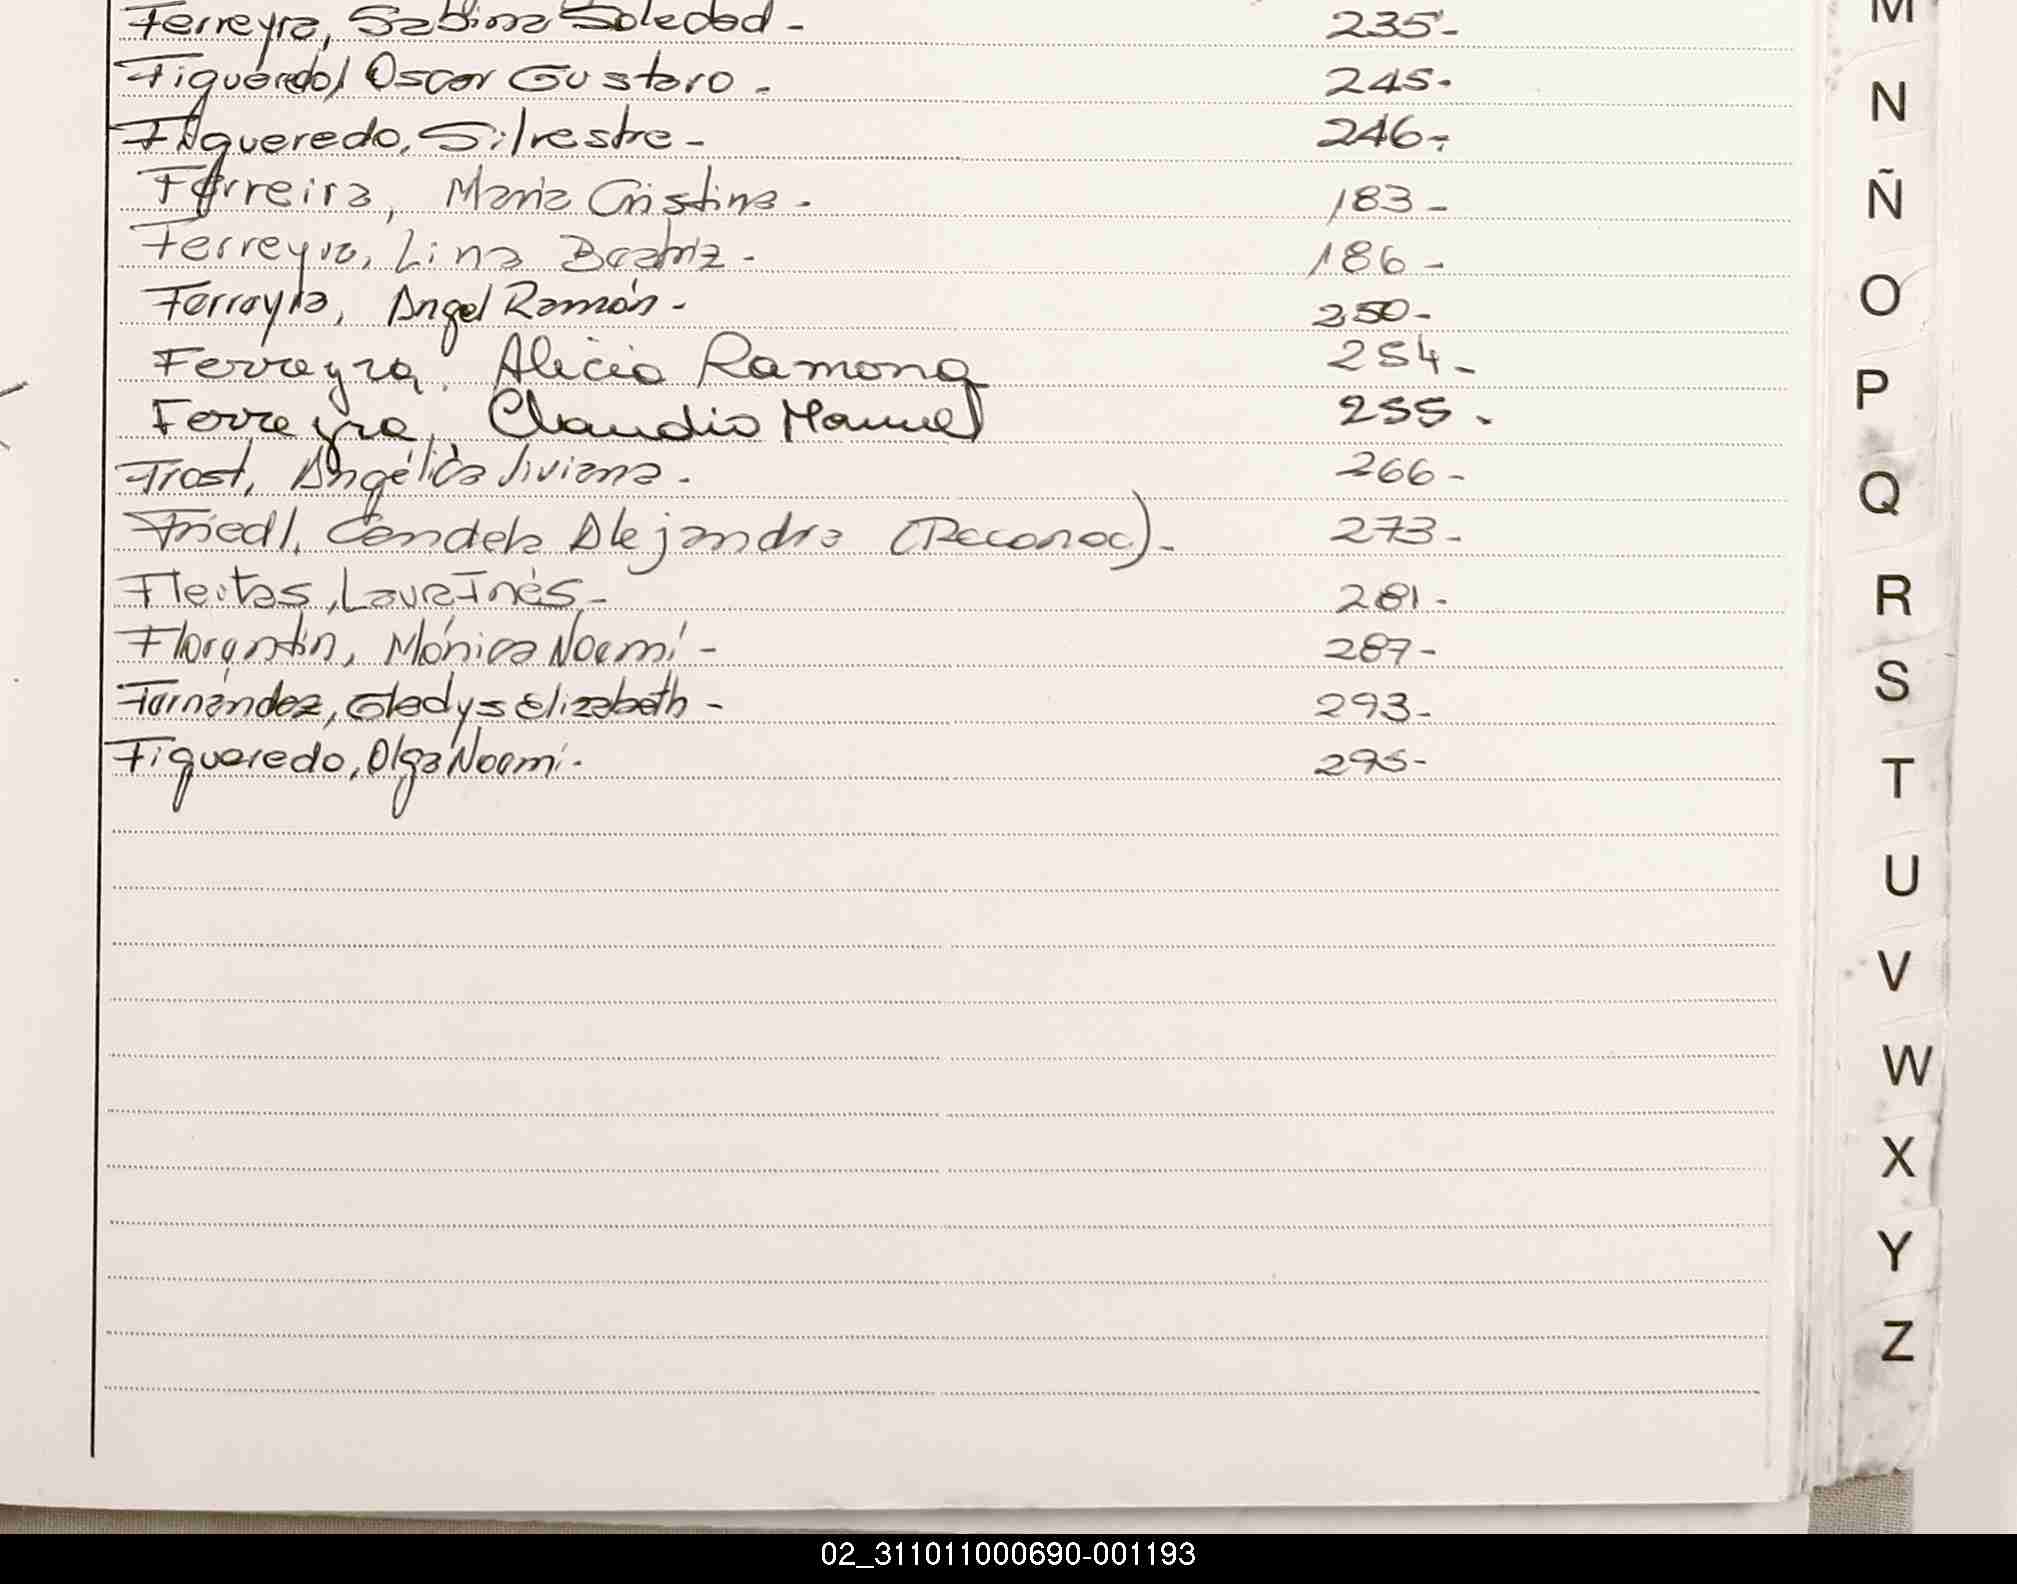 Ferreyra, Sabina Soledad - 235 -
Figueredo, Oscar Gustavo - 245 -
Figueredo, Silvestre - 246 -
Ferreira, Maria Cristina - 183 -
Ferreyra, Lina Beatriz - 186 -
Ferreyra, Angel Ramón - 250 -
Ferreyra, Alicia Ramona 254 -
Ferreyra, Claudio Manuel 255 -
Frost, Angélica Viviana - 266 -
Friedl, Candela Alejandra (Reconoc) - 273 -
Fleitas, Laura Inés - 281 -
Florentín, Mónica Noemí - 287 -
Fernández, Gladys Elizabeth - 293 -
Figueredo, Olga Noemí - 295 -
M
N
Ñ
O
P
Q
R
S
T
U
V
W
X
Y
Z
02_311011000690-001193